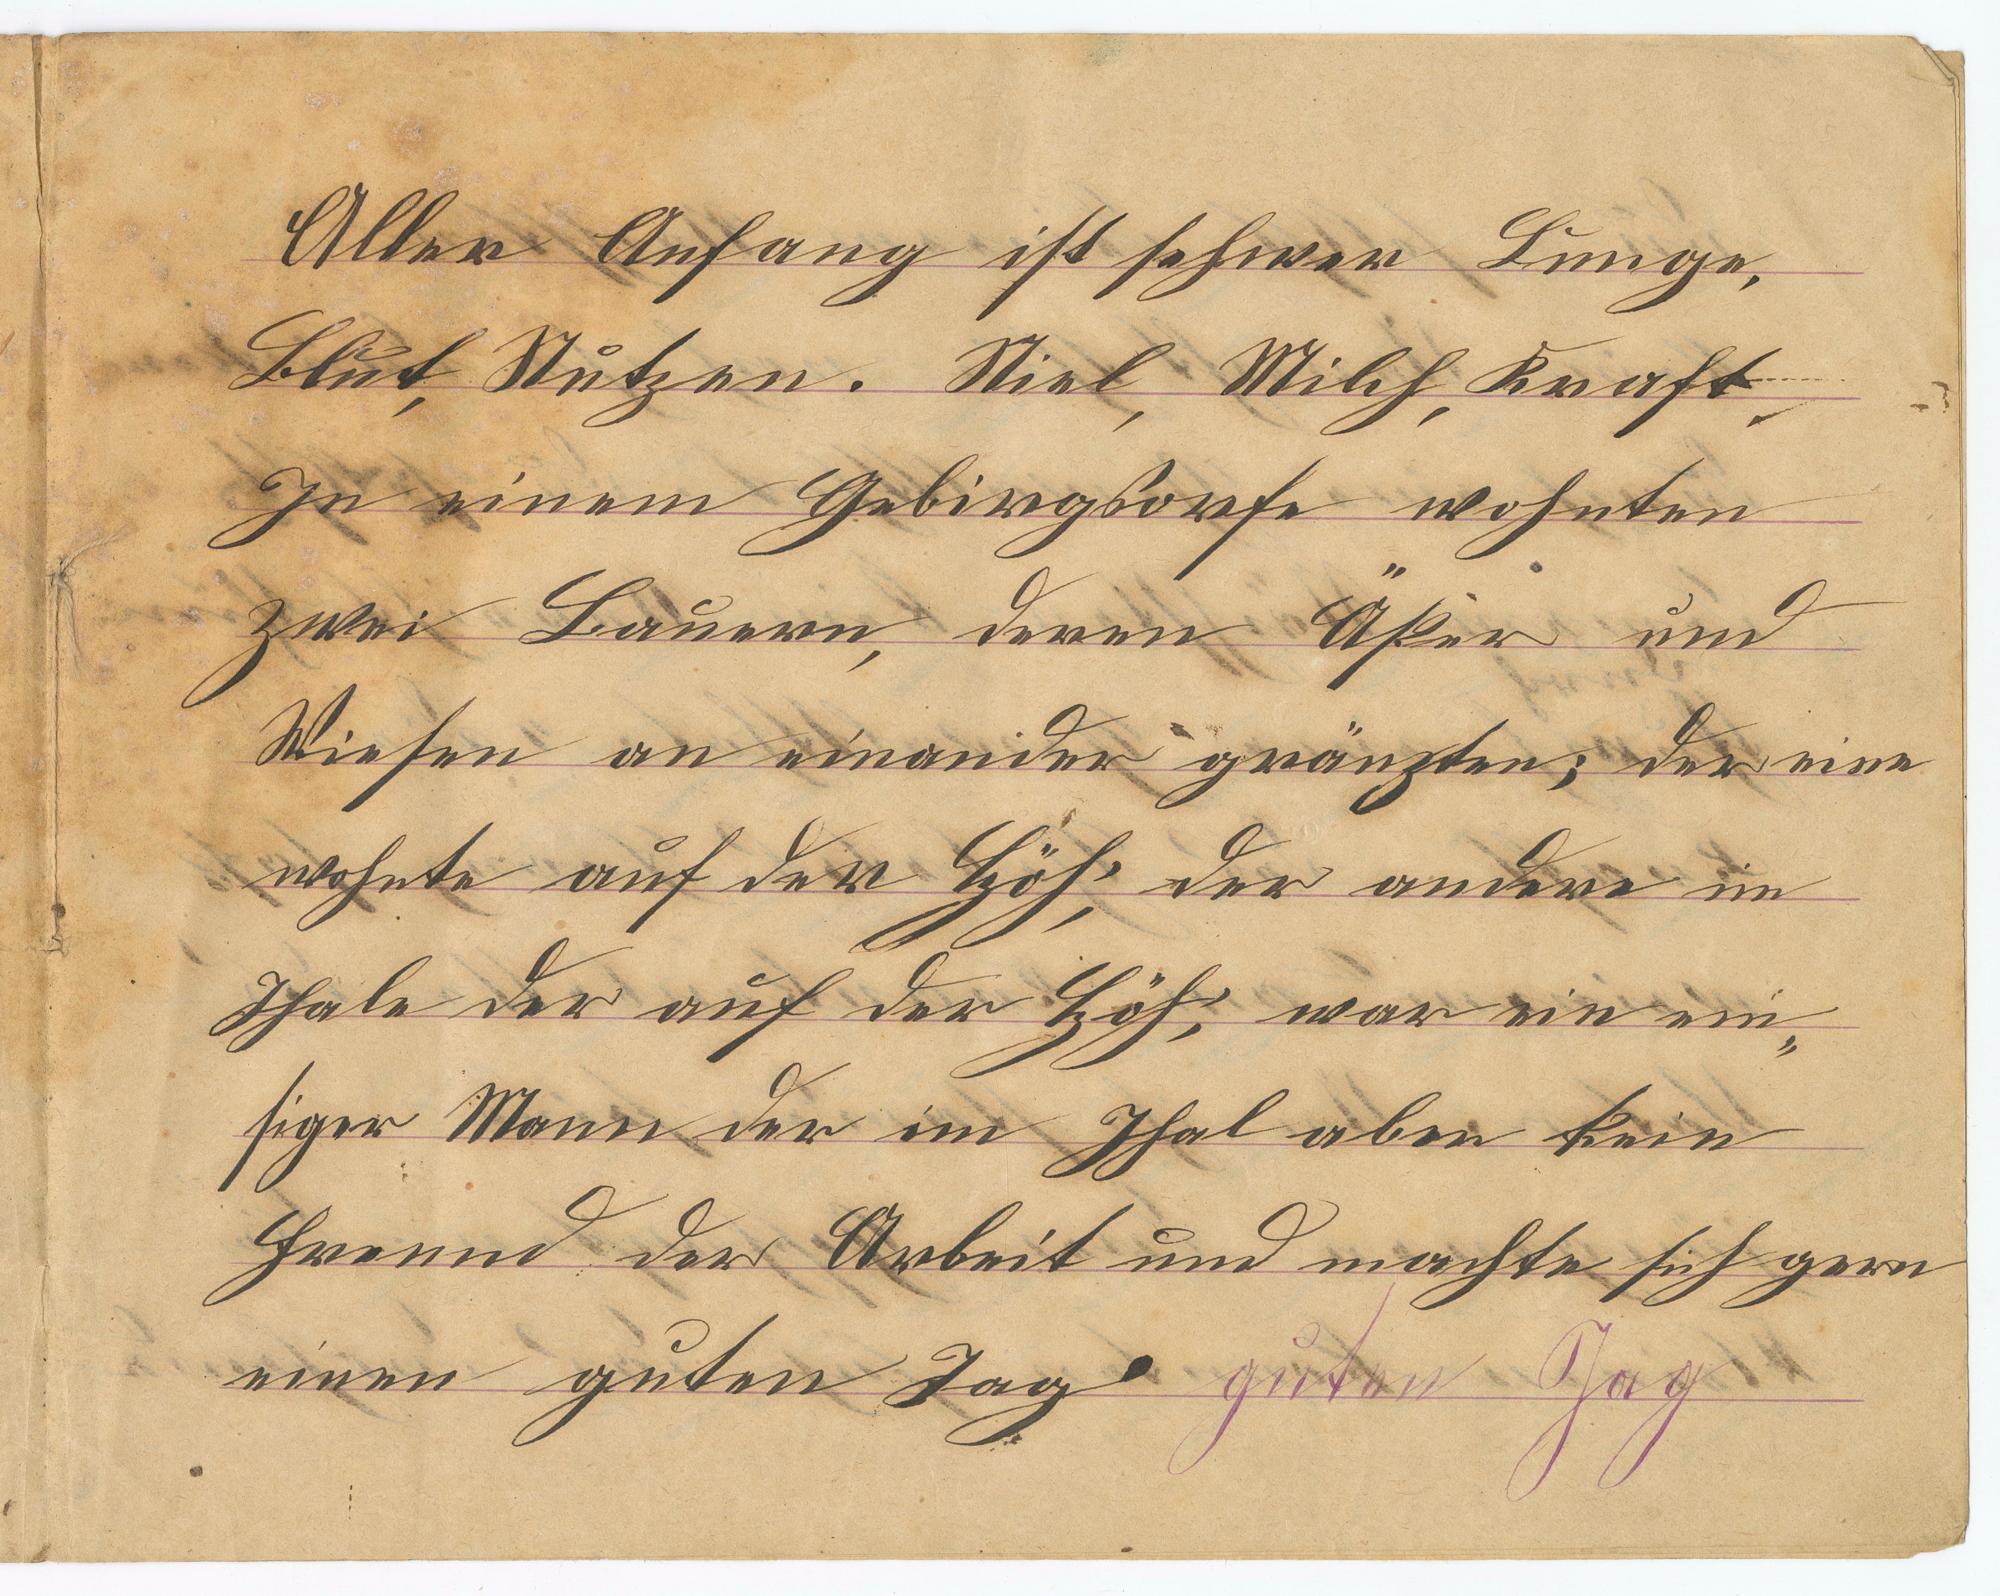 Aller Anfang ist schwer Lunge,
Blut, Nutzen. Stiel, Milch, Kraft,
In einem Gebirgsdorfe wohnten
zwei Bauern, deren Äker und
Wiesen an einander gränzten; der eine
wohnte auf der Höh', der andere im
Thale der auf der Höh', war ein em„
siger Mann der im Thal aber kein
Freund der Arbeit und machte sich gern
einen guten Tag. guten Tag